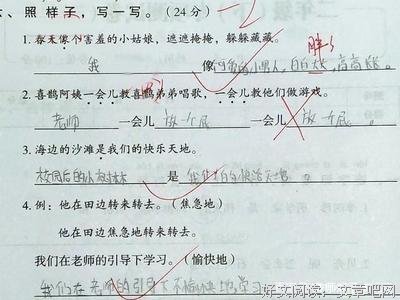 六、照样子,写一写。(24分) -2
1.春天像个害羞的小姑娘,遮遮掩掩,躲躲藏藏。
我 像 可爱的小男人,白白 胖胖,高高
2.喜鹊阿姨一会儿教喜鹊弟弟唱歌,一会儿教他们做游戏。
老师 一会儿 放一个屁 一会儿 放一个屁 。
3.海边的沙滩是我们的快乐天地。
校园后的小树林 是 我们的快洛天地 。
4.例:他在田边转来转去。(焦急地)
他在田边焦急地转来转去。
我们在老师的引导下学习。(愉快地)
我们在老师的引导下不愉快地学习
好文阅读:文章吧网